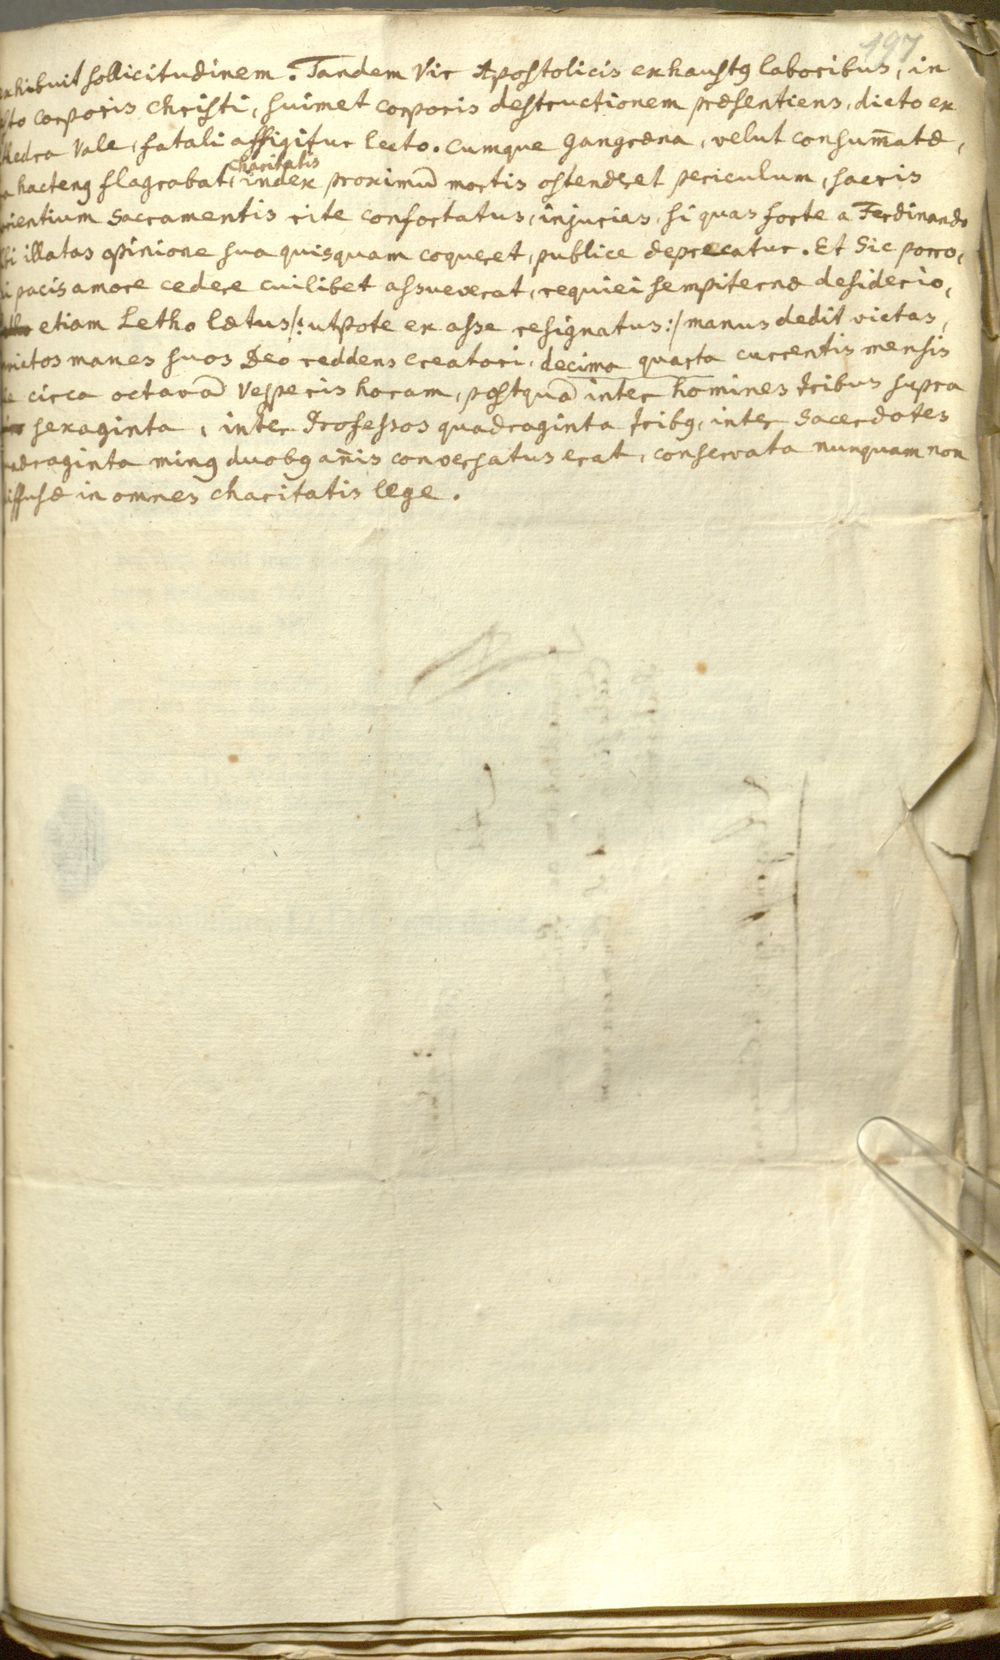 197
exhibuit sollicitudinem. Tandem Vir Apostolicis exhaustꝯ laboribus, in
sto corporis Christi, suimet corporis destructionem præsentiens, dicto ex
thedra Vale, fatali affigitur lecto. Cumque gangræna, velut consum̄atæ,
a hactenꝯ flagrabat, charitatis index proximū mortis ostenderet periculum, sacris
rientium Sacramentis rite confortatus, injurias, si quas forte a Ferdinando
bi illatas opinione sua quisquam coqueret, publice deprecatur. Et Sic porro,
i pacis amore cedere cuilibet assueverat, requiei sempiternæ desiderio,
etiam Letho lætus /: utpote ex asse resignatus :/ manus dedit victas,
nvictos manes suos Deo reddens creatori, decima quarta currentis mensis
circa octavā Vesperis horam, postquā inter homines tribus supra
sexaginta, inter Professos quadraginta tribꝯ, inter Sacerdotes
adraginta minꝯ duobꝯ an̄is conversatus erat, conservata nunquam non
iffusæ in omnes charitatis lege.